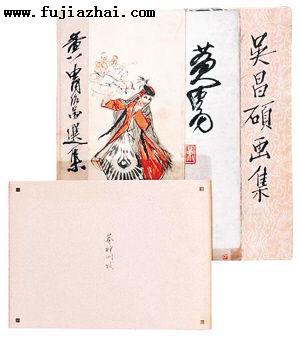 www.fujiazhai.com
黄胄作品選集
黄胄
吴昌碩画集